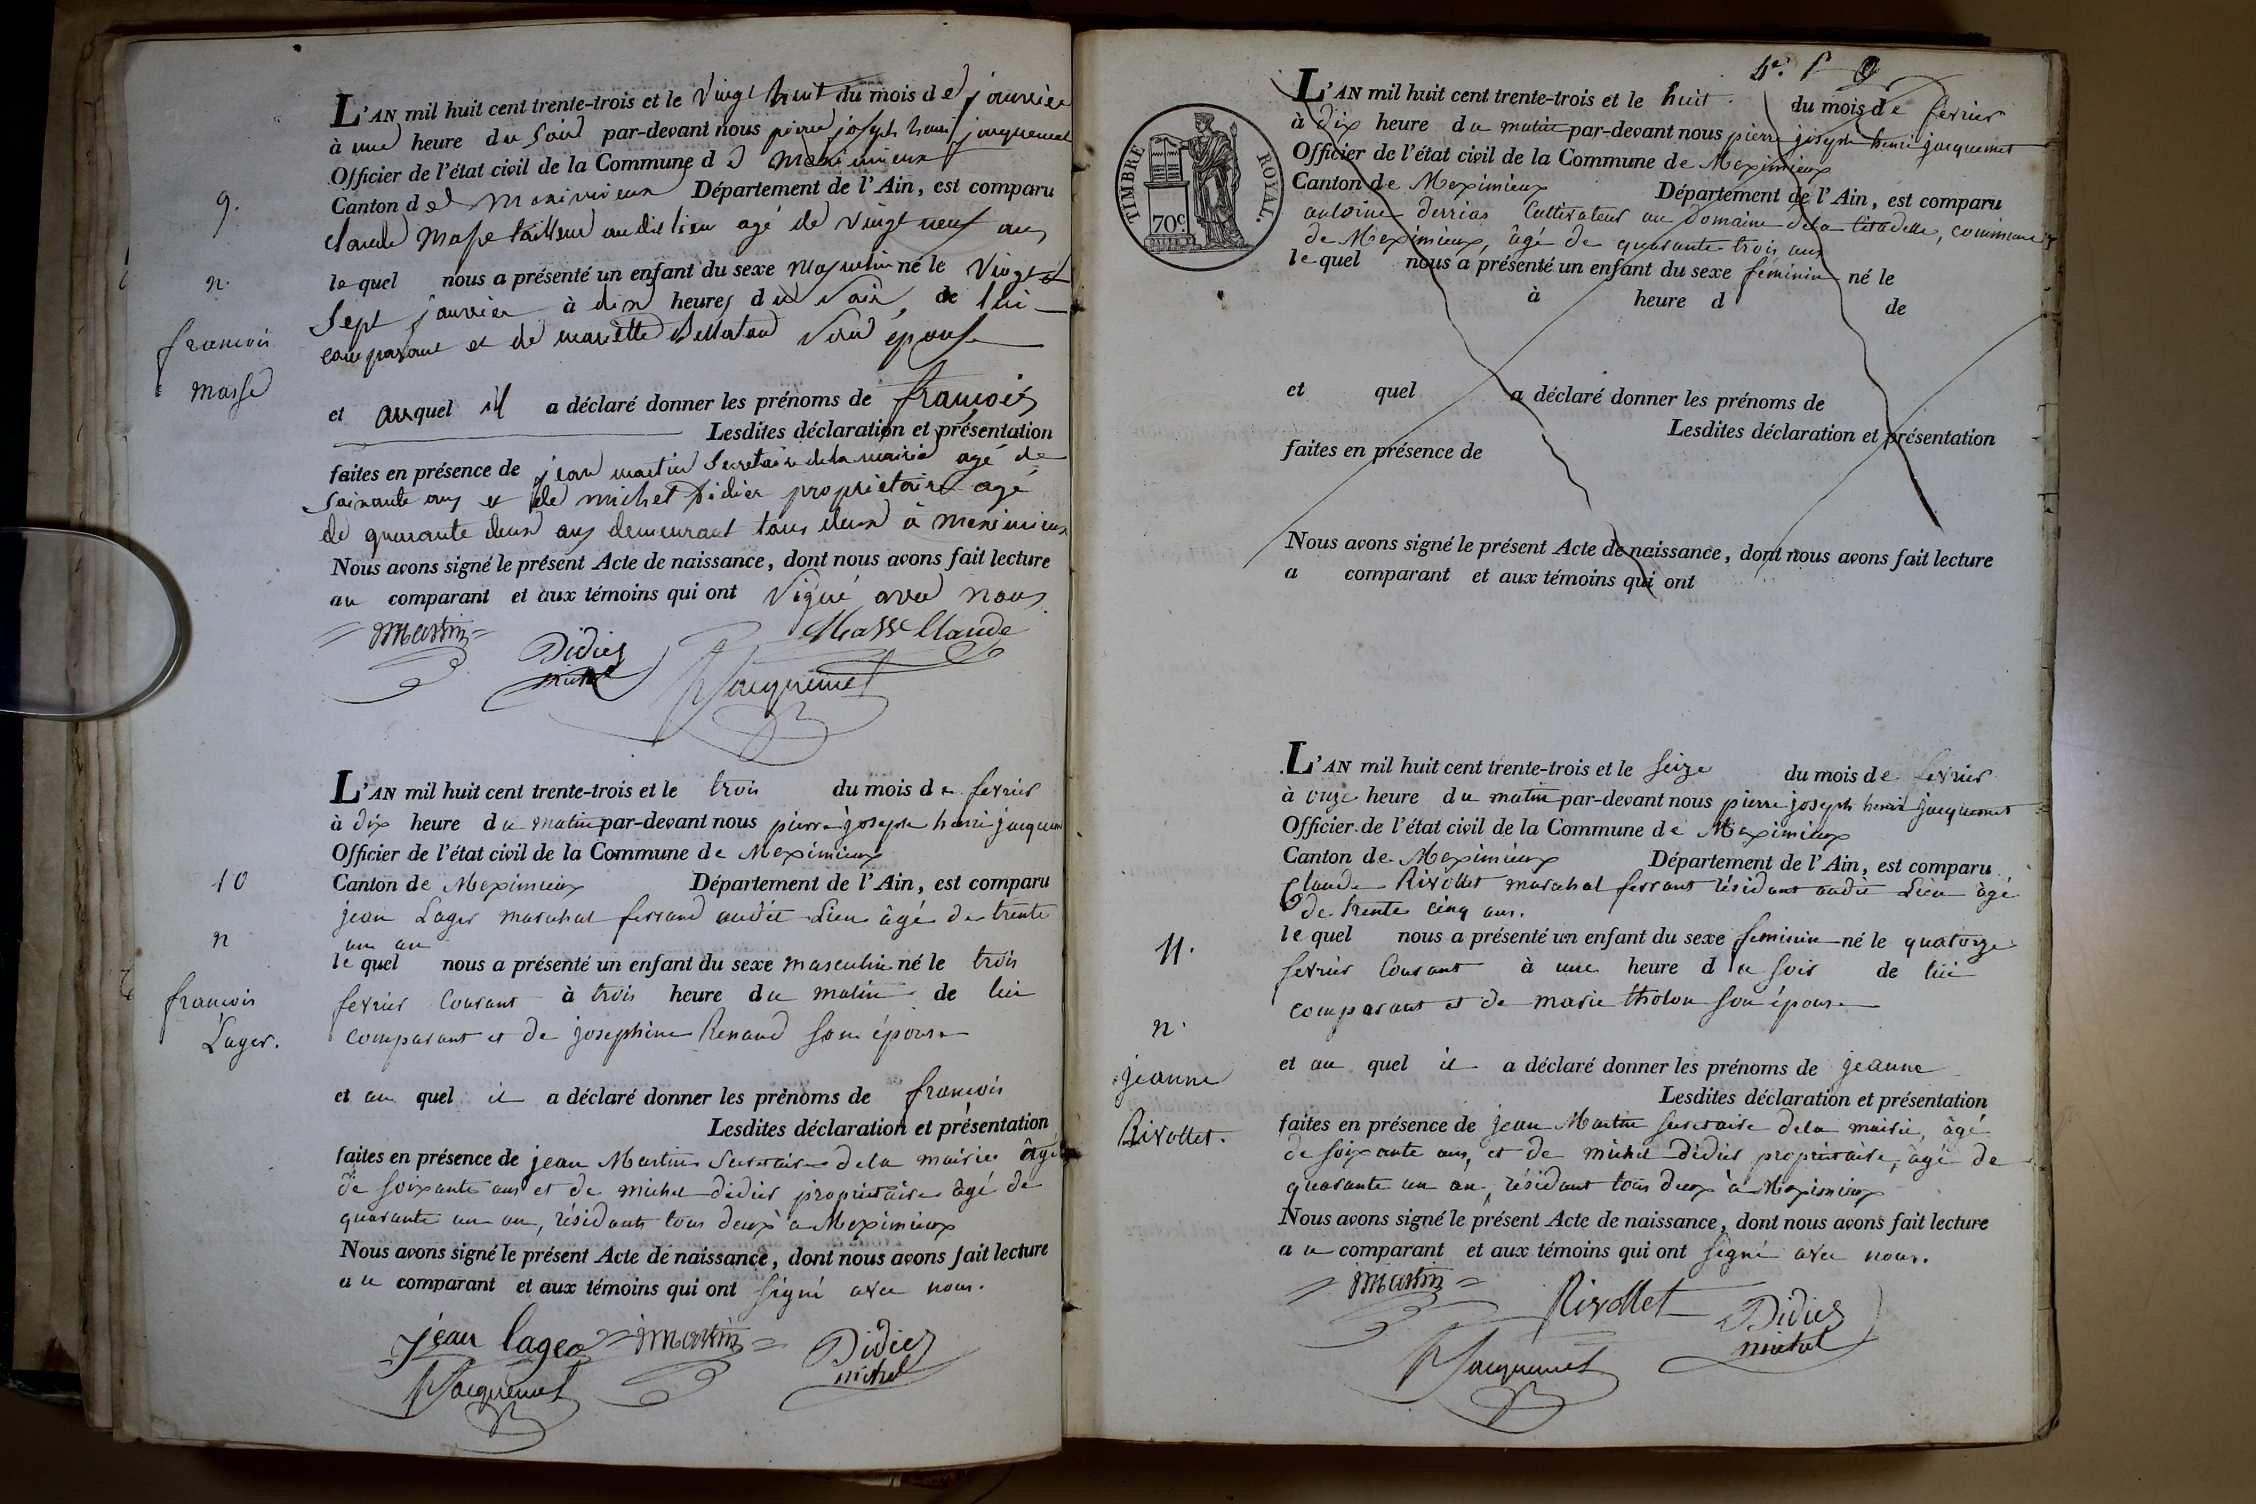 9.
n.
francois
Masse
L'AN mil huit cent trente-trois et le vingt huit du mois de janvier
à une heure du soir par-devant nous pierre joseph henri jacquemet
Officier de l'état civil de la Commune de Meximieux
Canton de Meximieux Département de l'Ain, est comparu
claude Masse tailleur audit lieu agé de vingt neuf ans
lequel nous a présenté un enfant du sexe Masculin né le vingt
sept janvier à dix heures du soir de lui
comparant et de mariette son épouse
et auquel il a déclaré donner les prénoms de francois
Lesdites déclaration et présentation
faites en présence de jean martin Secretaire de la mairie agé de
soixante ans et de michel Didier proprietaire agé
de quarante deux ans demeurant tous deux à meximieux
Nous avons signé le présent Acte de naissance, dont nous avons fait lecture
au comparant et aux témoins qui ont signé avec nous
Martin
Masse Claude
Didier
michel
Jacquemet
10
n
francois
Lager.
L'AN mil huit cent trente-trois et le trois du mois de fevrier
à dix heure du matin par-devant nous pierre joseph henri jacquemet
Officier de l'état civil de la Commune de Meximieux
Canton de Meximieux Département de l'Ain, est comparu
jean Lager marechal ferrand audit Lieu âgé de trente
un an
lequel nous a présenté un enfant du sexe masculin né le trois
fevrier Courant à trois heure du matin de lui
comparant et de josephine Renaud son épouse
et au quel il a déclaré donner les prénoms de francois
Lesdites déclaration et présentation
faites en présence de jean Martin Secretaire dela mairie âgé
de soixante ans et de michel didier propriétaire âgé de
quarante un an, résidants tous deux à Meximieux
Nous avons signé le présent Acte de naissance, dont nous avons fait lecture
au comparant et aux témoins qui ont signé avec nous.
jean lager
Martin
Didier
michel
Jacquemet
TIMBRE ROYAL.
70c.
L'AN mil huit cent trente-trois et le huit du mois de fevrier
à dix heure du matin par-devant nous pierre joseph henri jacquemet
Officier de l'état civil de la Commune de Meximieux
Canton de Meximieux Département de l'Ain, est comparu
antoine derrias Cultivateur au Domaine dela Citadelle, commune
de Meximieux, âgé de quarante trois ans
lequel nous a présenté un enfant du sexe féminin né le
à heure d de
et quel a déclaré donner les prénoms de
Lesdites déclaration et présentation
faites en présence de
Nous avons signé le présent Acte de naissance, dont nous avons fait lecture
a comparant et aux témoins qui ont
11.
n.
jeanne
Rivollet.
L'AN mil huit cent trente-trois et le seize du mois de fevrier
à onze heure du matin par-devant nous pierre joseph henri jacquemet
Officier de l'état civil de la Commune de Meximieux
Canton de Meximieux Département de l'Ain, est comparu
Claude Rivollet marechal ferrant résidant audit Lieu âgé
de trente cinq ans.
lequel nous a présenté un enfant du sexe feminin né le quatorze
fevrier Courant à une heure du soir de lui
comparant et de marie tholon son épouse
et au quel il a déclaré donner les prénoms de jeanne
Lesdites déclaration et présentation
faites en présence de jean Martin secretaire dela mairie, âgé
de soixante ans, et de michel didier propriétaire, agé de
quarante un an, résidant tous deux à Meximieux
Nous avons signé le présent Acte de naissance, dont nous avons fait lecture
au comparant et aux témoins qui ont signé avec nous.
Martin
Rivollet
Didier
michel
Jacquemet